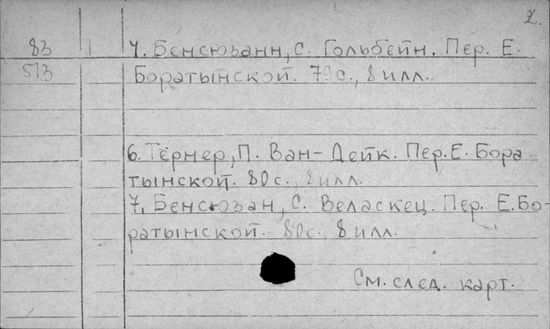 2.
83 1 4. Бенсюзанн, С. Гольбейн. Пер. Е.
513 Боратынской. 79с., 8 илл.
6. Тёрнер, П. Ван-Дейк. Пер. Е. Бора-
тынской. 80с., 8 илл.
7. Бенсюзан, С. Веласкец. Пер. Е. Бо-
ратынской. 80с., 8 илл.
См. след. карт.